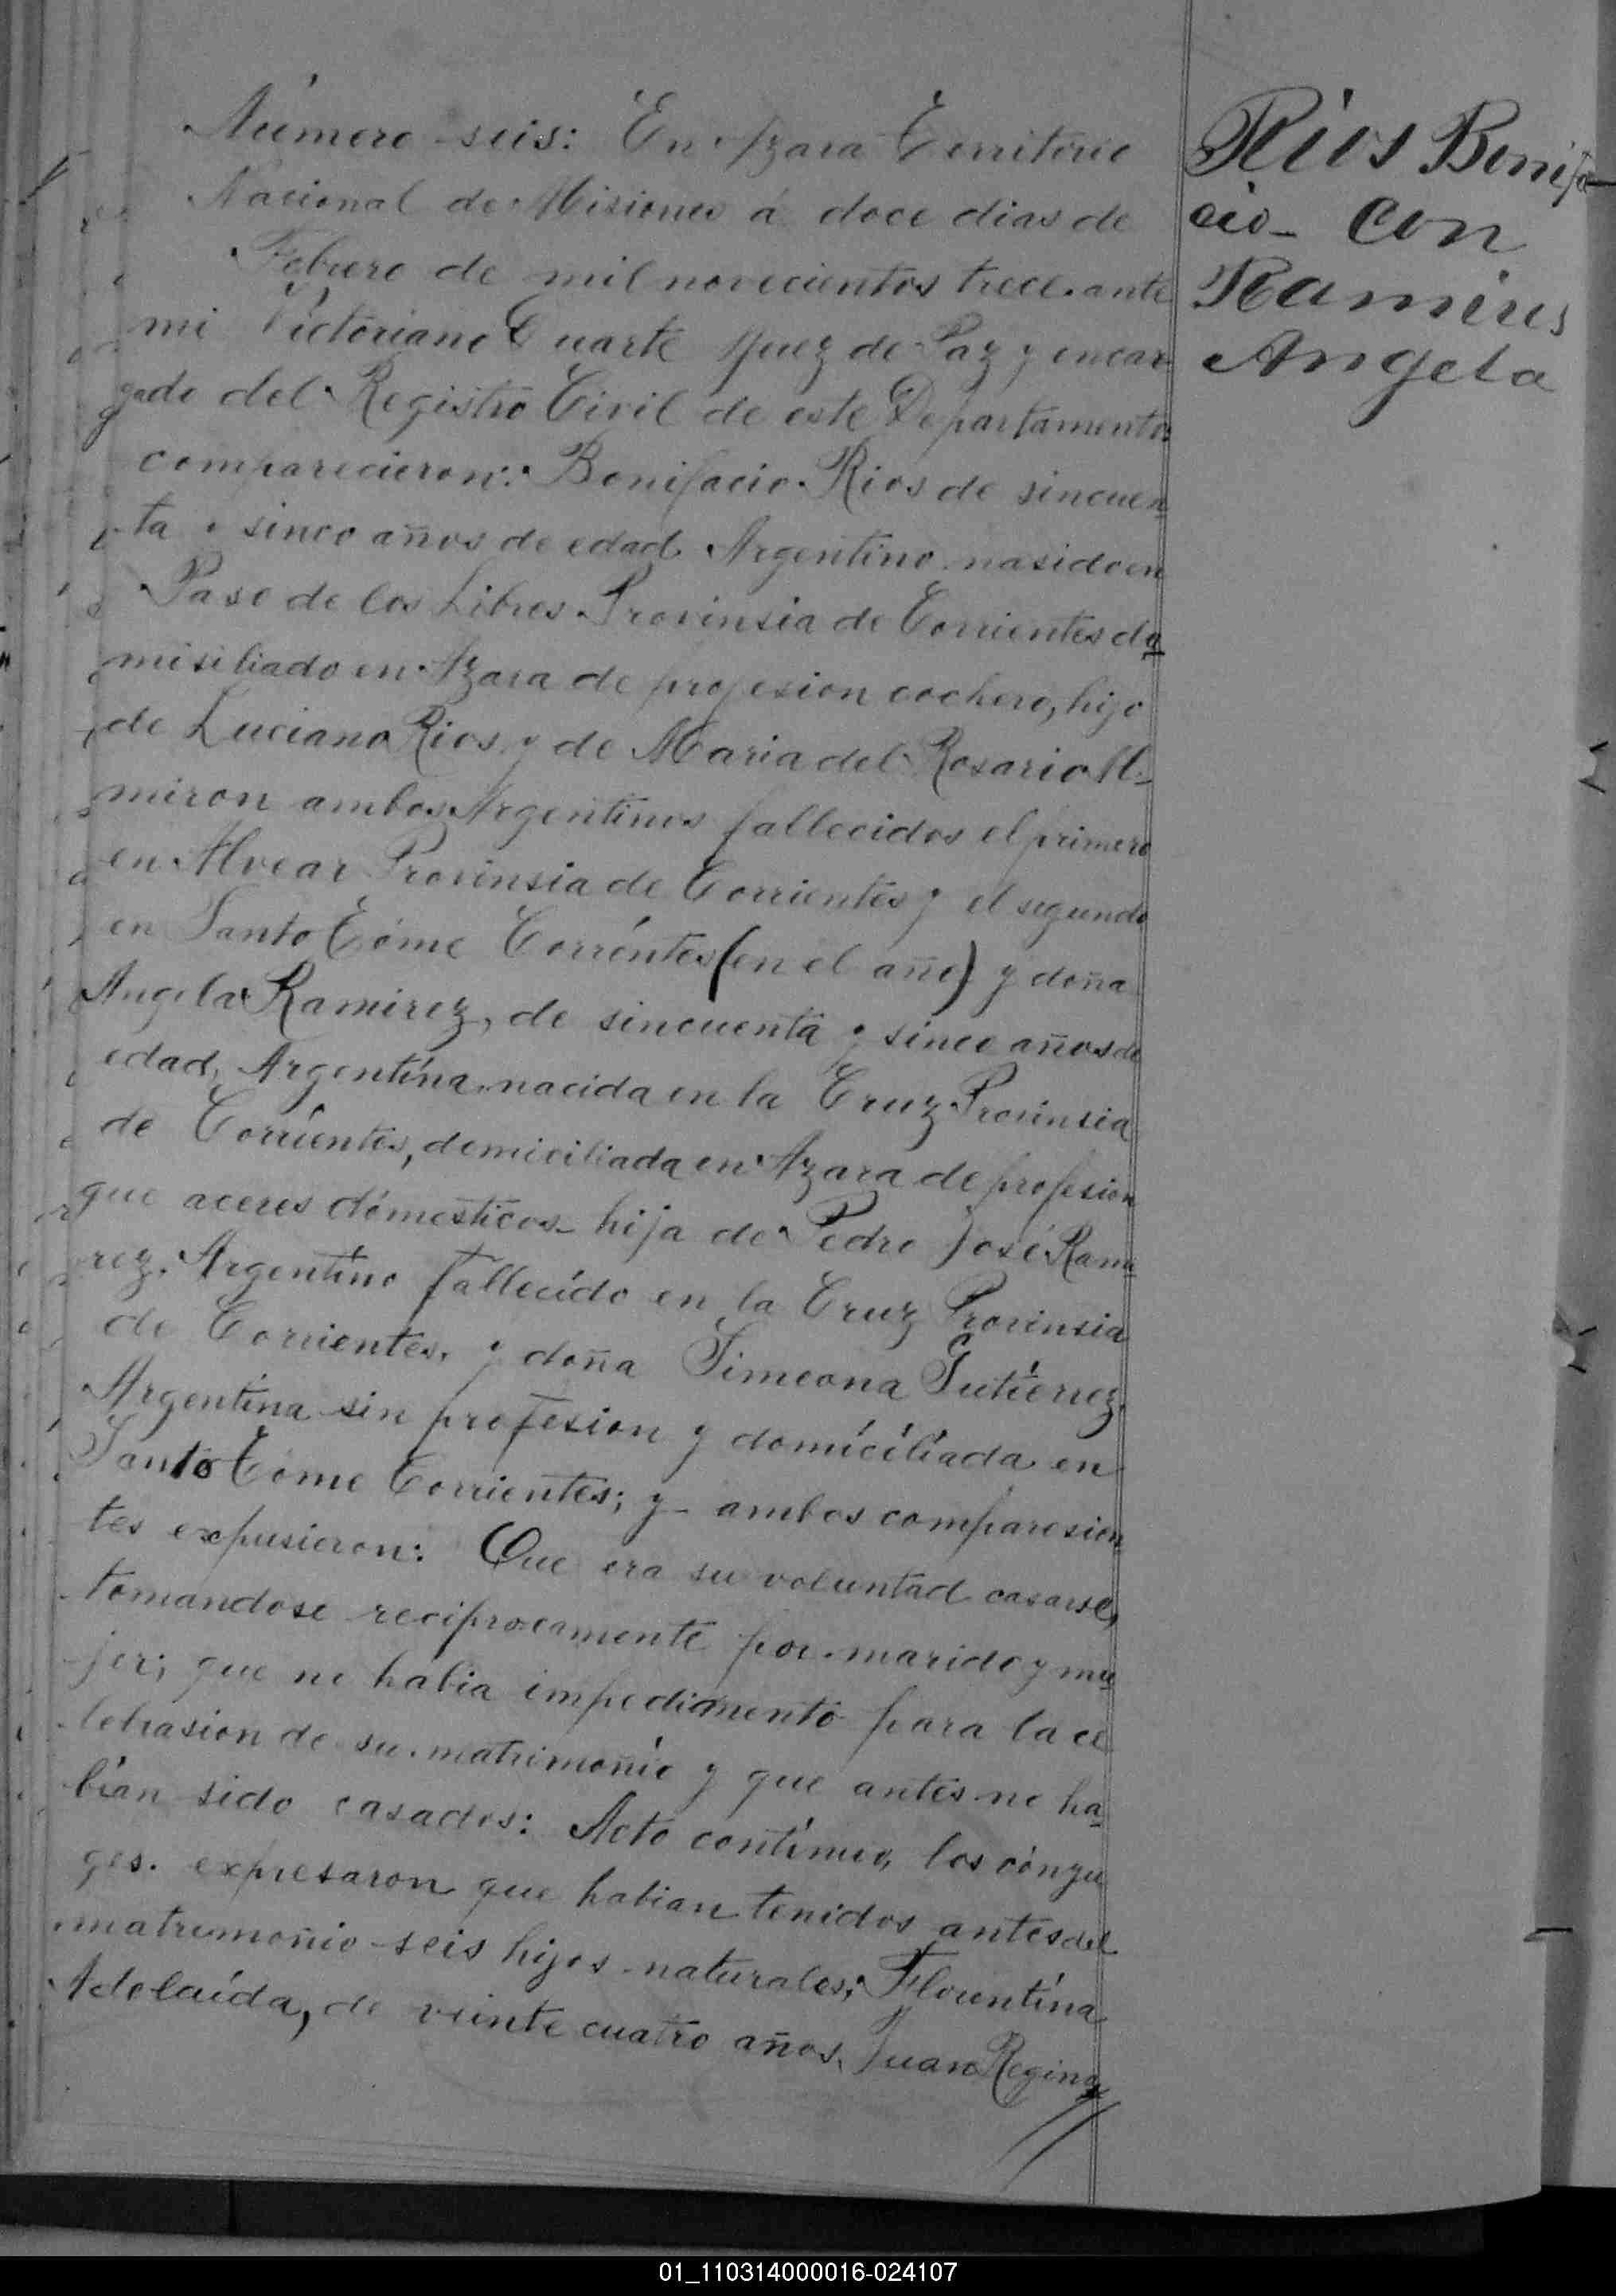 Número seis: En Azara Territorio
Nacional de Misiones á doce dias de
Febrero de mil novecientos trece. ante
mi Victoriano Duarte Juez de Paz y encar
gado del Registro Civil de este Departamento
comparecieron: Bonifacio Rios de sincuen
ta y sinco años de edad Argentino nasido en
Paso de los Libres Provinsia de Corrientes do
misiliado en Azara de profesion cochero, hijo
de Luciano Rios y de Maria del Rosario Al-
miron ambos Argentinos fallecidos el primero
en Alvear Provinsia de Corrientes y el segundo
en Santo Tóme Corréntes (en el año) y doña
Angela Ramirez, de sincuenta y sinco años de
edad, Argentína nacida en la Cruz Provinsia
de Corrientes, domiciliada en Azara de profesion
que aceres domesticos- hija de Pedro José Rami
rez. Argentíno fallecído en la Cruz Provinsia
de Corrientes, y doña Simeona Gutíerrez,
Argentina sin profesion y domícilíada en
Santo Tóme Corrientes; y- ambos comparesien
tes expusieron: Que era su voluntad casarse,
tomandose reciprocamente por marido y mu
jer; que no habia impedimento para la ce
lebrasion de su matrimonío y que antes no ha
bían sido casados: Acto contínuo, los cónyu
ges. expresaron que habian tenidos antes del
matrimonio seis hijos naturales; Florentína
Adelaída, de veinte cuatro años, Juan Regino
Rios Bonifa
cio- con
Ramires
Angela
01_110314000016-024107